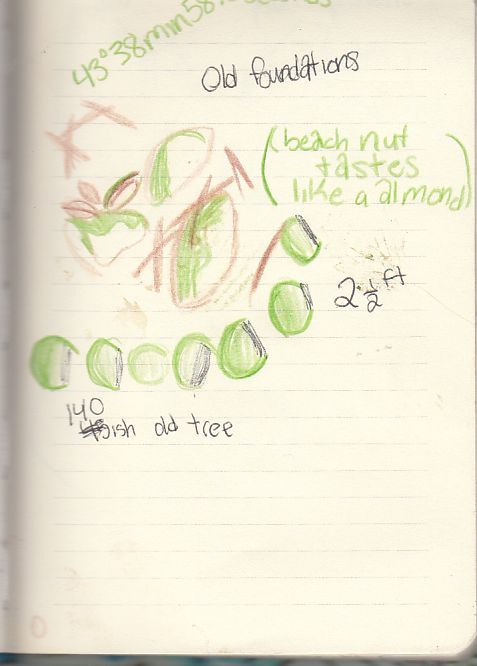 43°38min58
Old foundations
(beach nut
tastes
like a almond)
2 1/2 ft
140
ish old tree